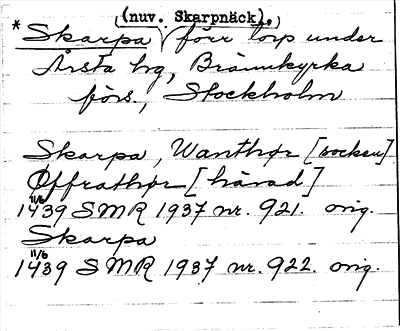 (nuv. Skarpnäck).
* Skarpa förr torp under
Årsta hg, Brännkyrka
förs., Stockholm
Skarpa, Wanthør [socken]
Øffrathør [härad]
11/6
1439 SMR 1937 nr. 921. orig.
Skarpa
11/6
1439 SMR 1937 nr. 922. orig.